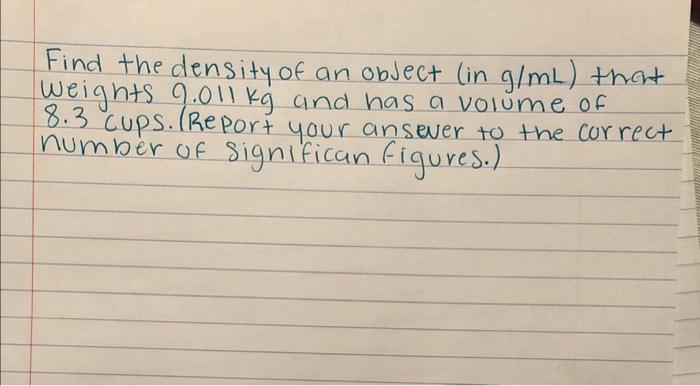 Find the density of an object (in g/mL) that
weights 9.011 kg and has a volume of
8.3 cups. (Report your ansewer to the correct
number of significan figures.)